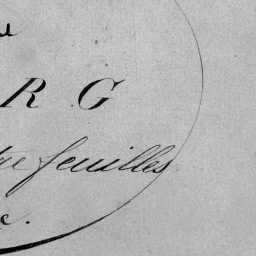 u
R G
feuilles
c.